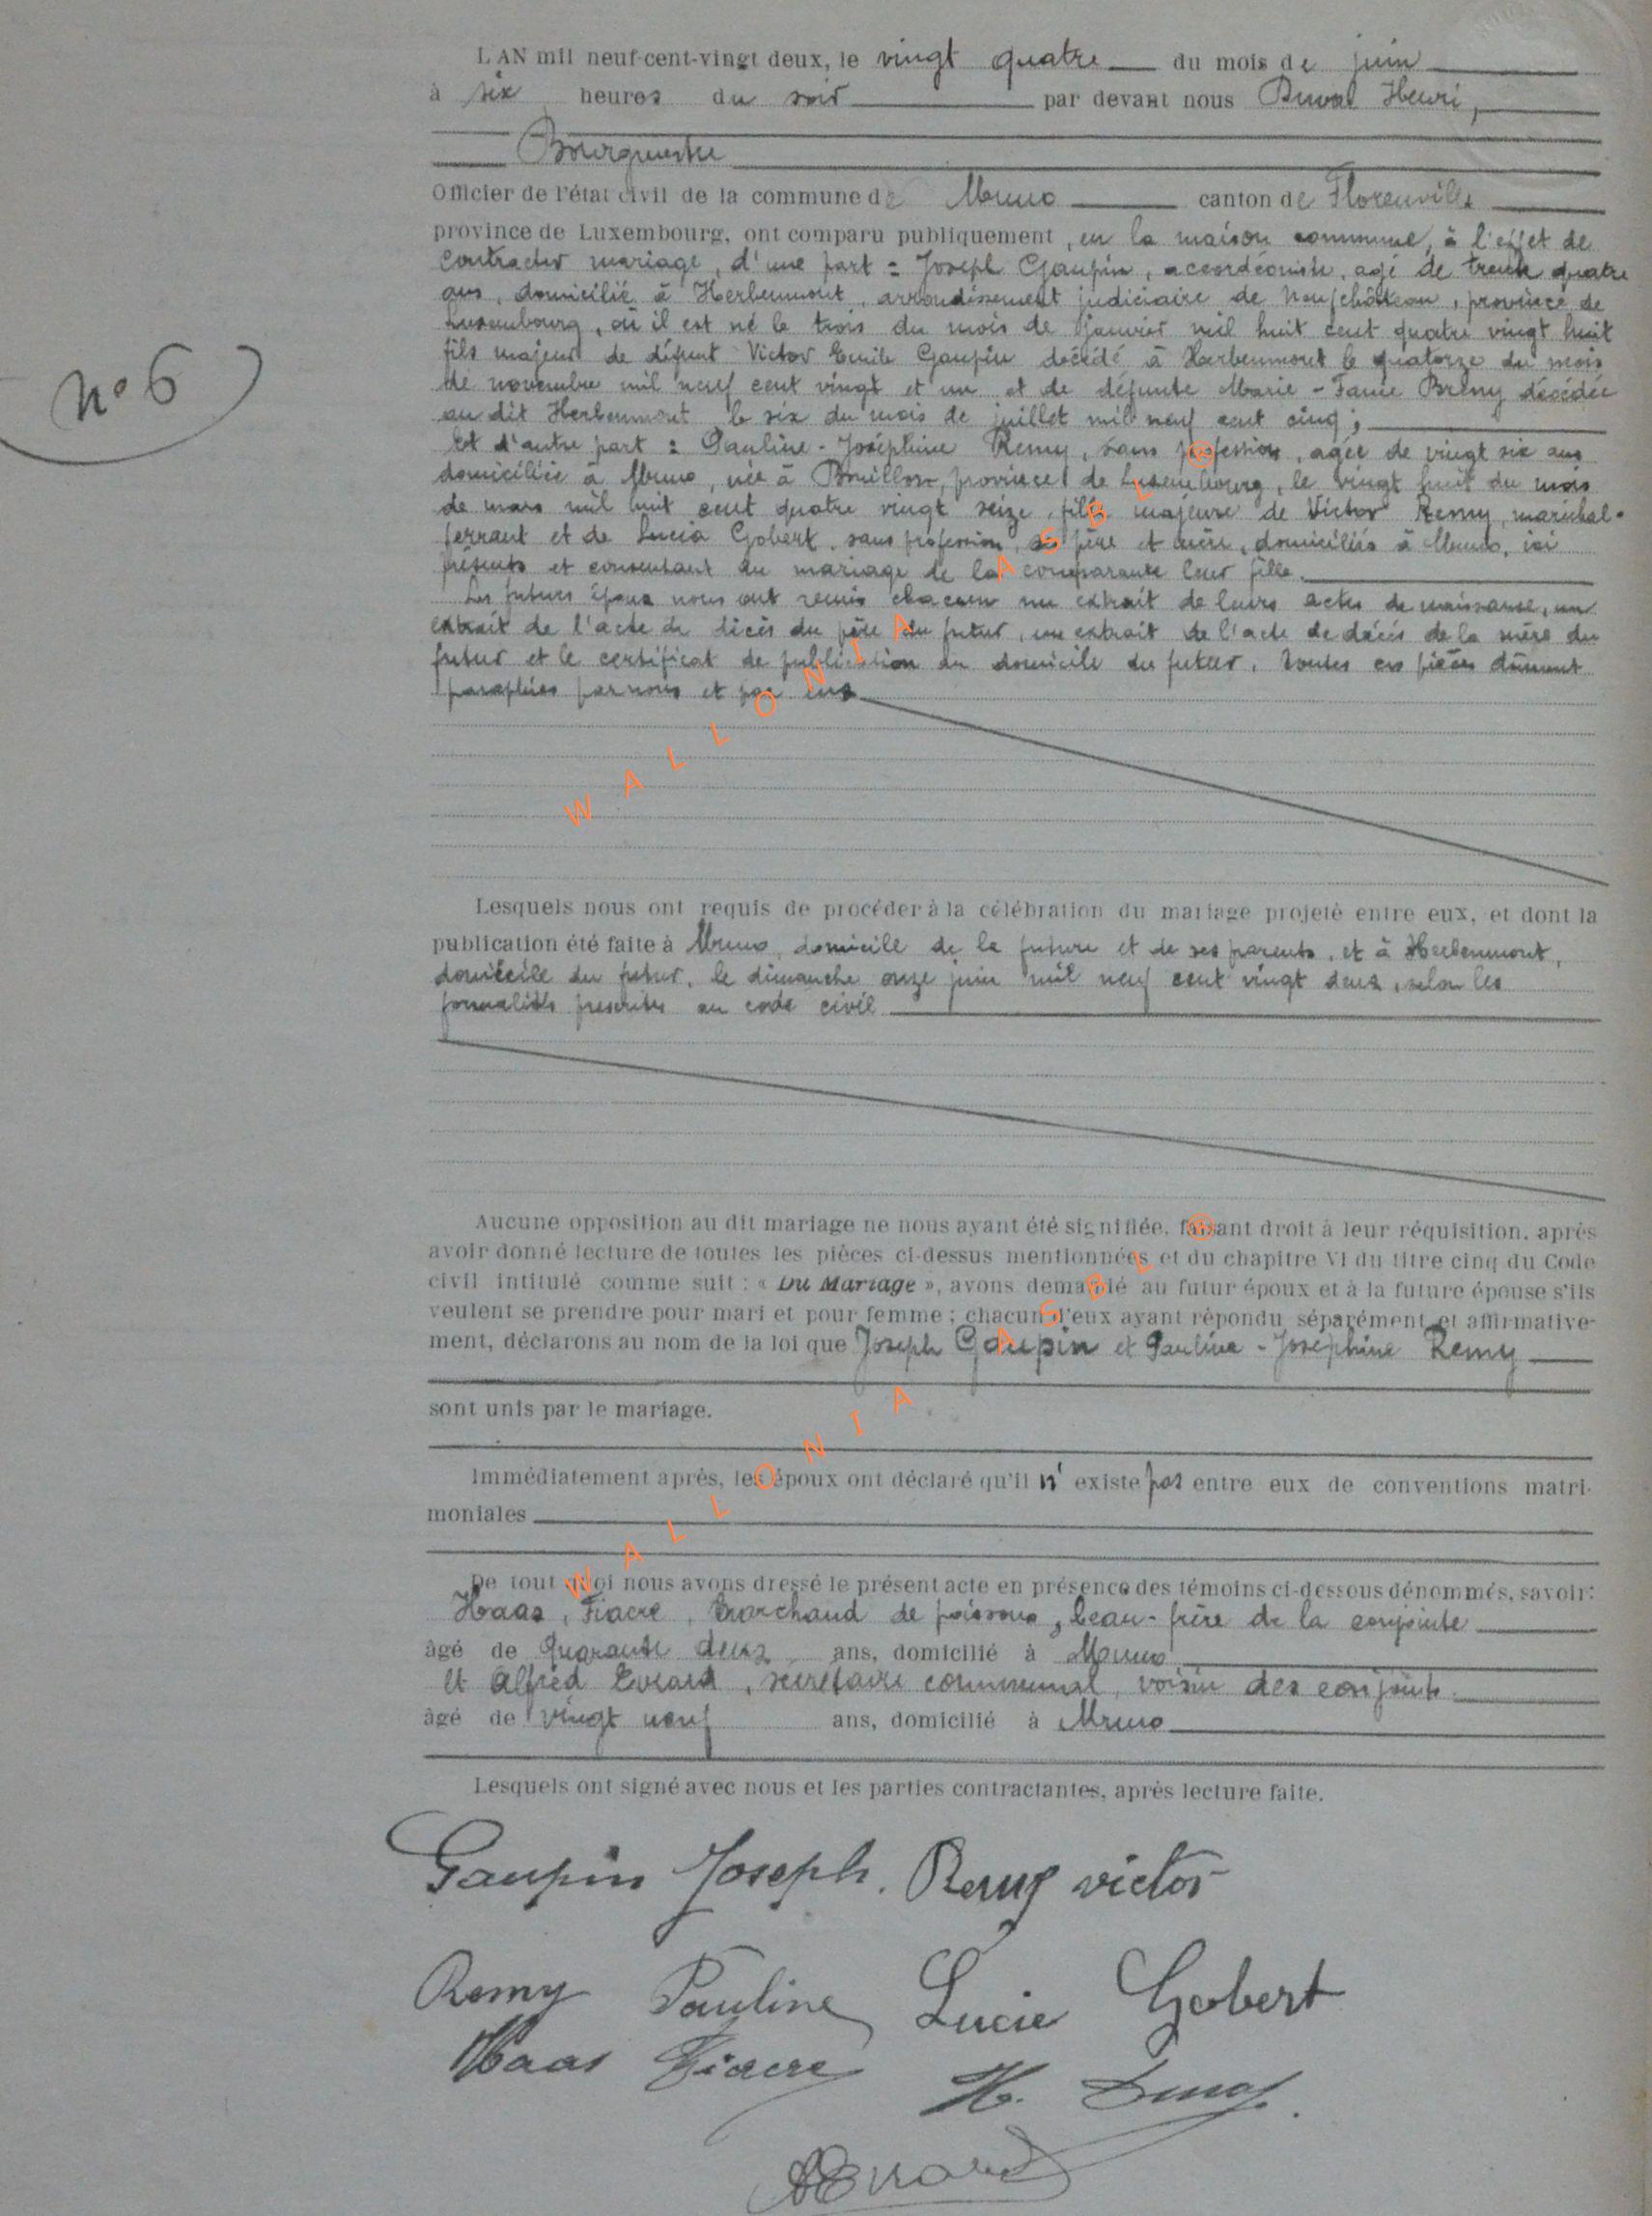 L'AN mil neuf-cent-vingt deux, le vingt quatre du mois de juin
à six heures du soir par devant nous Duval Henri,
Bourgmestre
Officier de l'état civil de la commune de Muno canton de Florenville
province de Luxembourg, ont comparu publiquement, en la maison commune, à l'effet de
contracter mariage, d'une part : Joseph Gaupin, accordéoniste, agé de trente quatre
ans, domicilié à Herbeumont, arrondissement judiciaire de Neufchâteau, province de
Luxembourg, où il est né le trois du mois de janvier mil huit cent quatre vingt huit
fils majeur de défunt Victor Emile Gaupin décédé à Herbeumont le quatorze du mois
de novembre mil neuf cent vingt et un et de défunte Marie - Fanie Brémy décédée
au dit Herbeumont le six du mois de juillet mil neuf cent cinq ;
N° 6
Et d'autre part : Pauline - Joséphine Remy, sans profession, agée de vingt six ans
domiciliée à Muno, née à Bouillon, province de Luxembourg, le vingt huit du mois
de mars mil huit cent quatre vingt seize, fille majeure de Victor Remy, maréchal-
ferrant et de Lucia Gobert, sans profession, ses père et mère, domiciliés à Muno, ici
présents et consentant au mariage de la comparante leur fille.
Les futurs époux nous ont remis chacun un extrait de leurs actes de naissance, un
extrait de l'acte de décès du père du futur, un extrait de l'acte de décès de la mère du
futur et le certificat de publication du domicile du futur. Toutes ces pièces dûment
paraphées par nous et par eux
Lesquels nous ont requis de procéder à la célébration du mariage projeté entre eux, et dont la
publication été faite à Muno, domicile de la future et de ses parents, et à Herbeumont,
domicile du futur, le dimanche onze juin mil neuf cent vingt deux, selon les
formalités prescrites au code civil
Aucune opposition au dit mariage ne nous ayant été signifiée, faisant droit à leur réquisition, après
avoir donné lecture de toutes les pièces ci-dessus mentionnées et du chapitre VI du titre cinq du Code
civil intitulé comme suit : « Du Mariage », avons demandé au futur époux et à la future épouse s'ils
veulent se prendre pour mari et pour femme ; chacun d'eux ayant répondu séparément et affirmative-
ment, déclarons au nom de la loi que Joseph Gaupin et Pauline - Joséphine Remy
sont unis par le mariage.
Immédiatement après, les époux ont déclaré qu'il n' existe pas entre eux de conventions matri-
moniales
De tout quoi nous avons dressé le présent acte en présence des témoins ci-dessous dénommés, savoir:
Haas, Fiacre, Marchand de poissons, beau-frère de la conjointe
âgé de quarante deux ans, domicilié à Muno
Et Alfred Evrard, secrétaire communal, voisin des conjoints.
âgé de vingt neuf ans, domicilié à Muno
Lesquels ont signé avec nous et les parties contractantes, après lecture faite.
Gaupin Joseph. Remy victor
Remy Pauline Lucie Gobert
Haas Fiacre H. Duval.
AEvrard
WALLONIA ASBL ®
WALLONIA ASBL ®